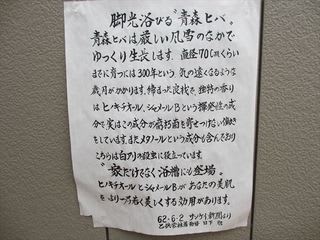 脚光浴びる"青森ヒバ。
青森ヒバは厳しい風雪のなかで
ゆっくり生長します。直径70cmくらい
までに育つには300年という気の遠くなるような
歳月がかかります。締まった良材で、独特の香り
はヒノキチオール、シャメールBという揮発性の成
分で実はこの成分が腐朽菌を寄せつけない働き
をしています。またメタノールという成分も含んでおり
こちらは白アリの殺虫に役立っています。
"家だけでなく浴槽にも登場。
ヒノキチオールとシャメールBがあなたの美肌
をより一層若く美しくする効用があります。
62.6.2 サンケイ新聞より